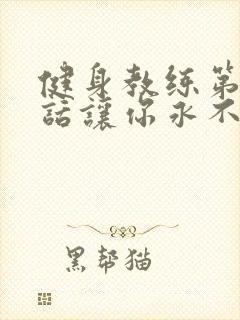 健身教练第
話讓你永不
黑帮猫